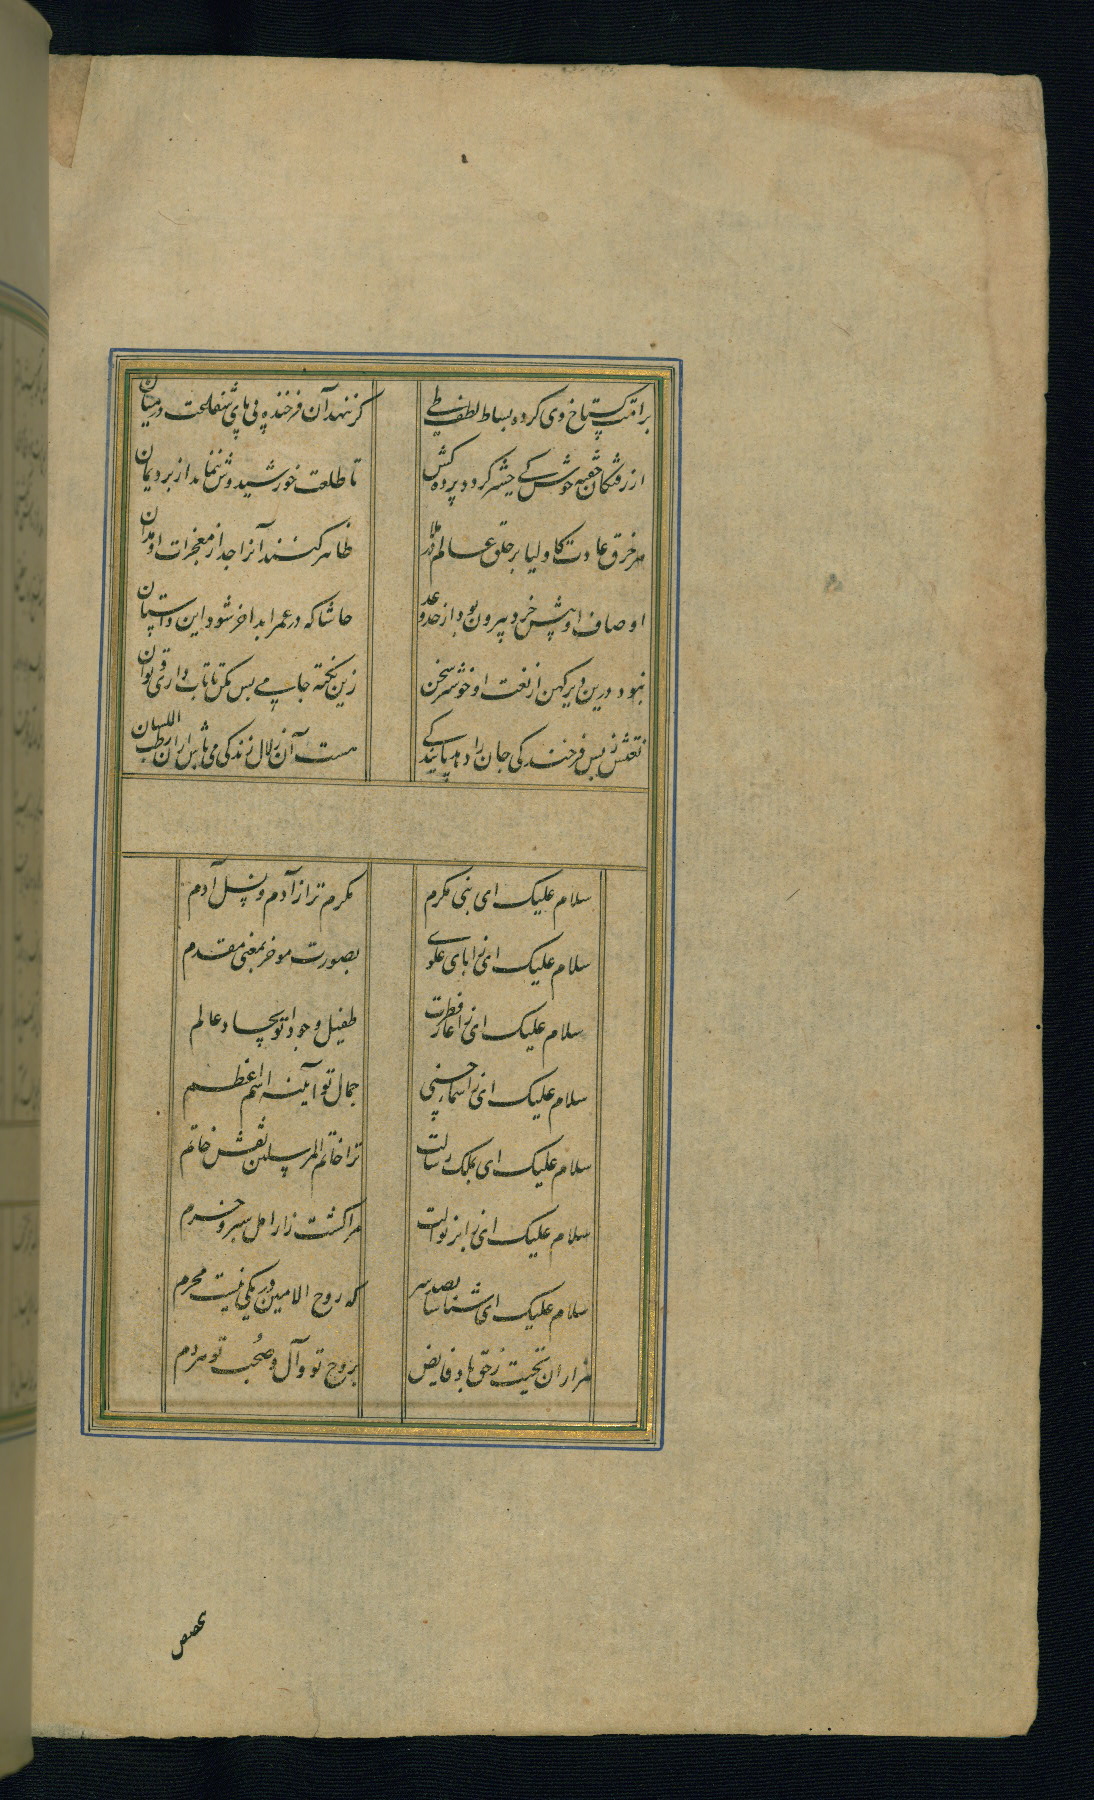 بر امت گستاخ وی کرده بساط لطف طی
گر ننهد آن فرخنده پی پای شفاعت در میان
از رشگ آن خفته خوش کی حشر گردد پرده کش
تا طلعت خورشیدوش ننماید از برد یمان
هر خرق عادت کاولیا بر خلق عالم
ظاهر کنند آنرا جدا از معجزات او مدان
اوصاف او پیش خرد بیرون بود از حد و عد
حاشا که در عمر ابد اخر شود این داستان
نبود درین دیر کهن از نعت او خوشتر سخن
زین نکته جامی بس مکن تا تاب داری و توان
نعتش ز بس فرخندگی جان را دهد پایندگی
هست آن زلال زندگی می باش از آن رطب اللسان
سلام علیک ای نبی مکرم
مکرم تر از آدم و نسل آدم
سلام علیک ای ز ابای علوی
بصورت موخر بمعنی مقدم
سلام علیک ای ز آغاز فطرت
طفیل وجود تو ایجاد عالم
سلام علیک ای ز اسماء حسنی
جمال تو آیینه اسم اعظم
سلام علیک ای بملک رسالت
ترا خاتم المرسلین نقش خاتم
سلام علیک ای ز ابر نوالت
مرا کشت زار امل سبز و خرم
سلام علیک ای شناسا بصد سر
که روح الامین در یکی نیست محرم
هزاران تحیت ز حق باد فایض
بروح تو و آل و صحب تو هر دم